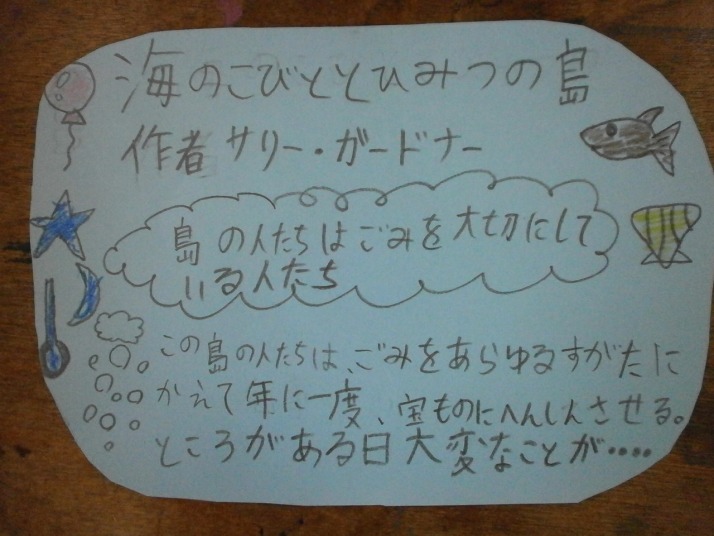 海のこびととひみつの島
作者 サリー・ガードナー
島の人たちはごみを大切にして
いる人たち
この島の人たちは、ごみをあらゆるすがたに
かえて年に一度、宝ものにへんしんさせる。
ところがある日大変なことが‥‥